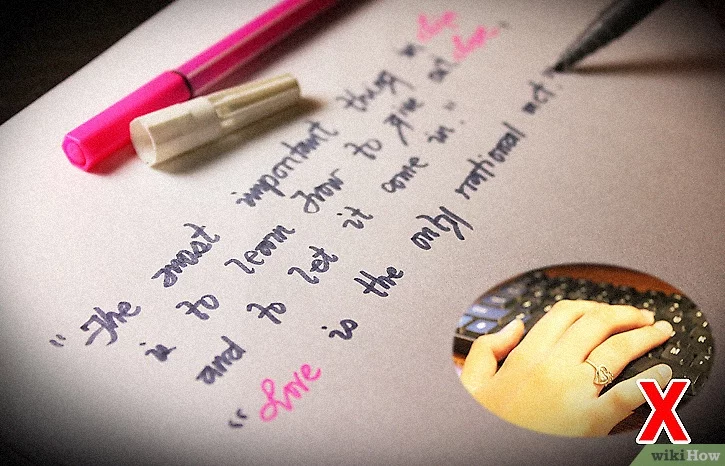 "The most important thing in love
is to learn how to give out love,
and to let it come in."
"Love is the only rational act."
X
wikiHow